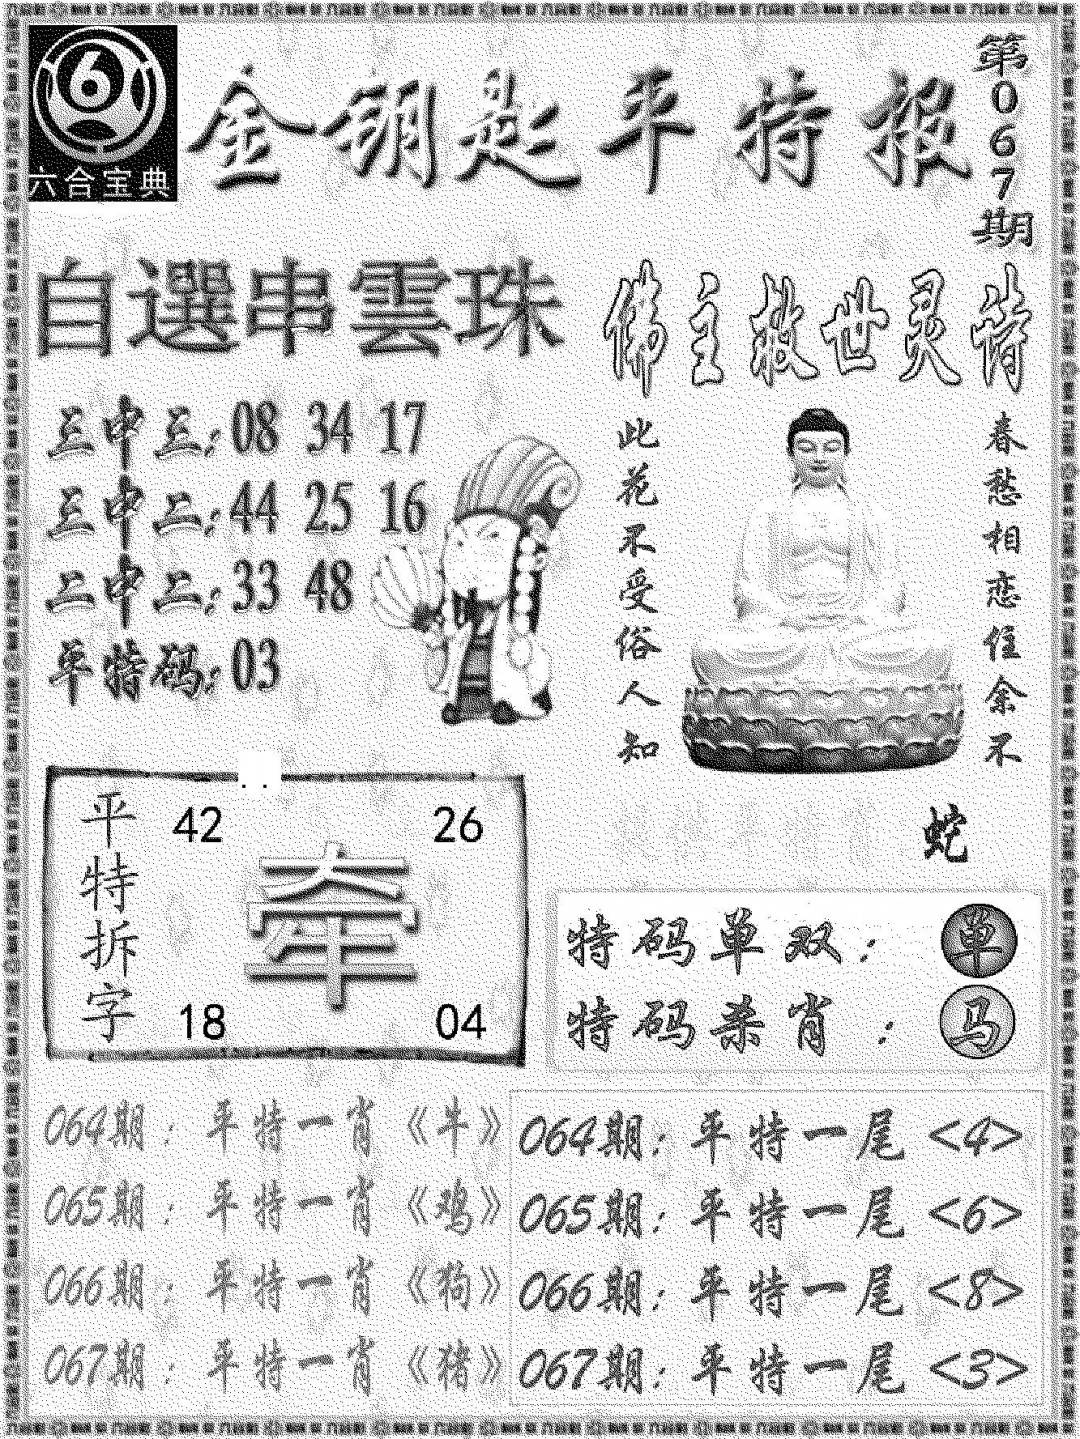 六合宝典
金钥匙平特报
第067期
自選串雲珠
三中三:08 34 17
三中二:44 25 16
二中二:33 48
平特码:03
佛主救世灵诗
春愁相恋住余不
此花不受俗人知
蛇
平特拆字
42 26
牵
18 04
特码单双：单
特码杀肖：马
064期：平特一肖《牛》
065期：平特一肖《鸡》
066期：平特一肖《狗》
067期：平特一肖《猪》
064期：平特一尾<4>
065期：平特一尾<6>
066期：平特一尾<8>
067期：平特一尾<3>